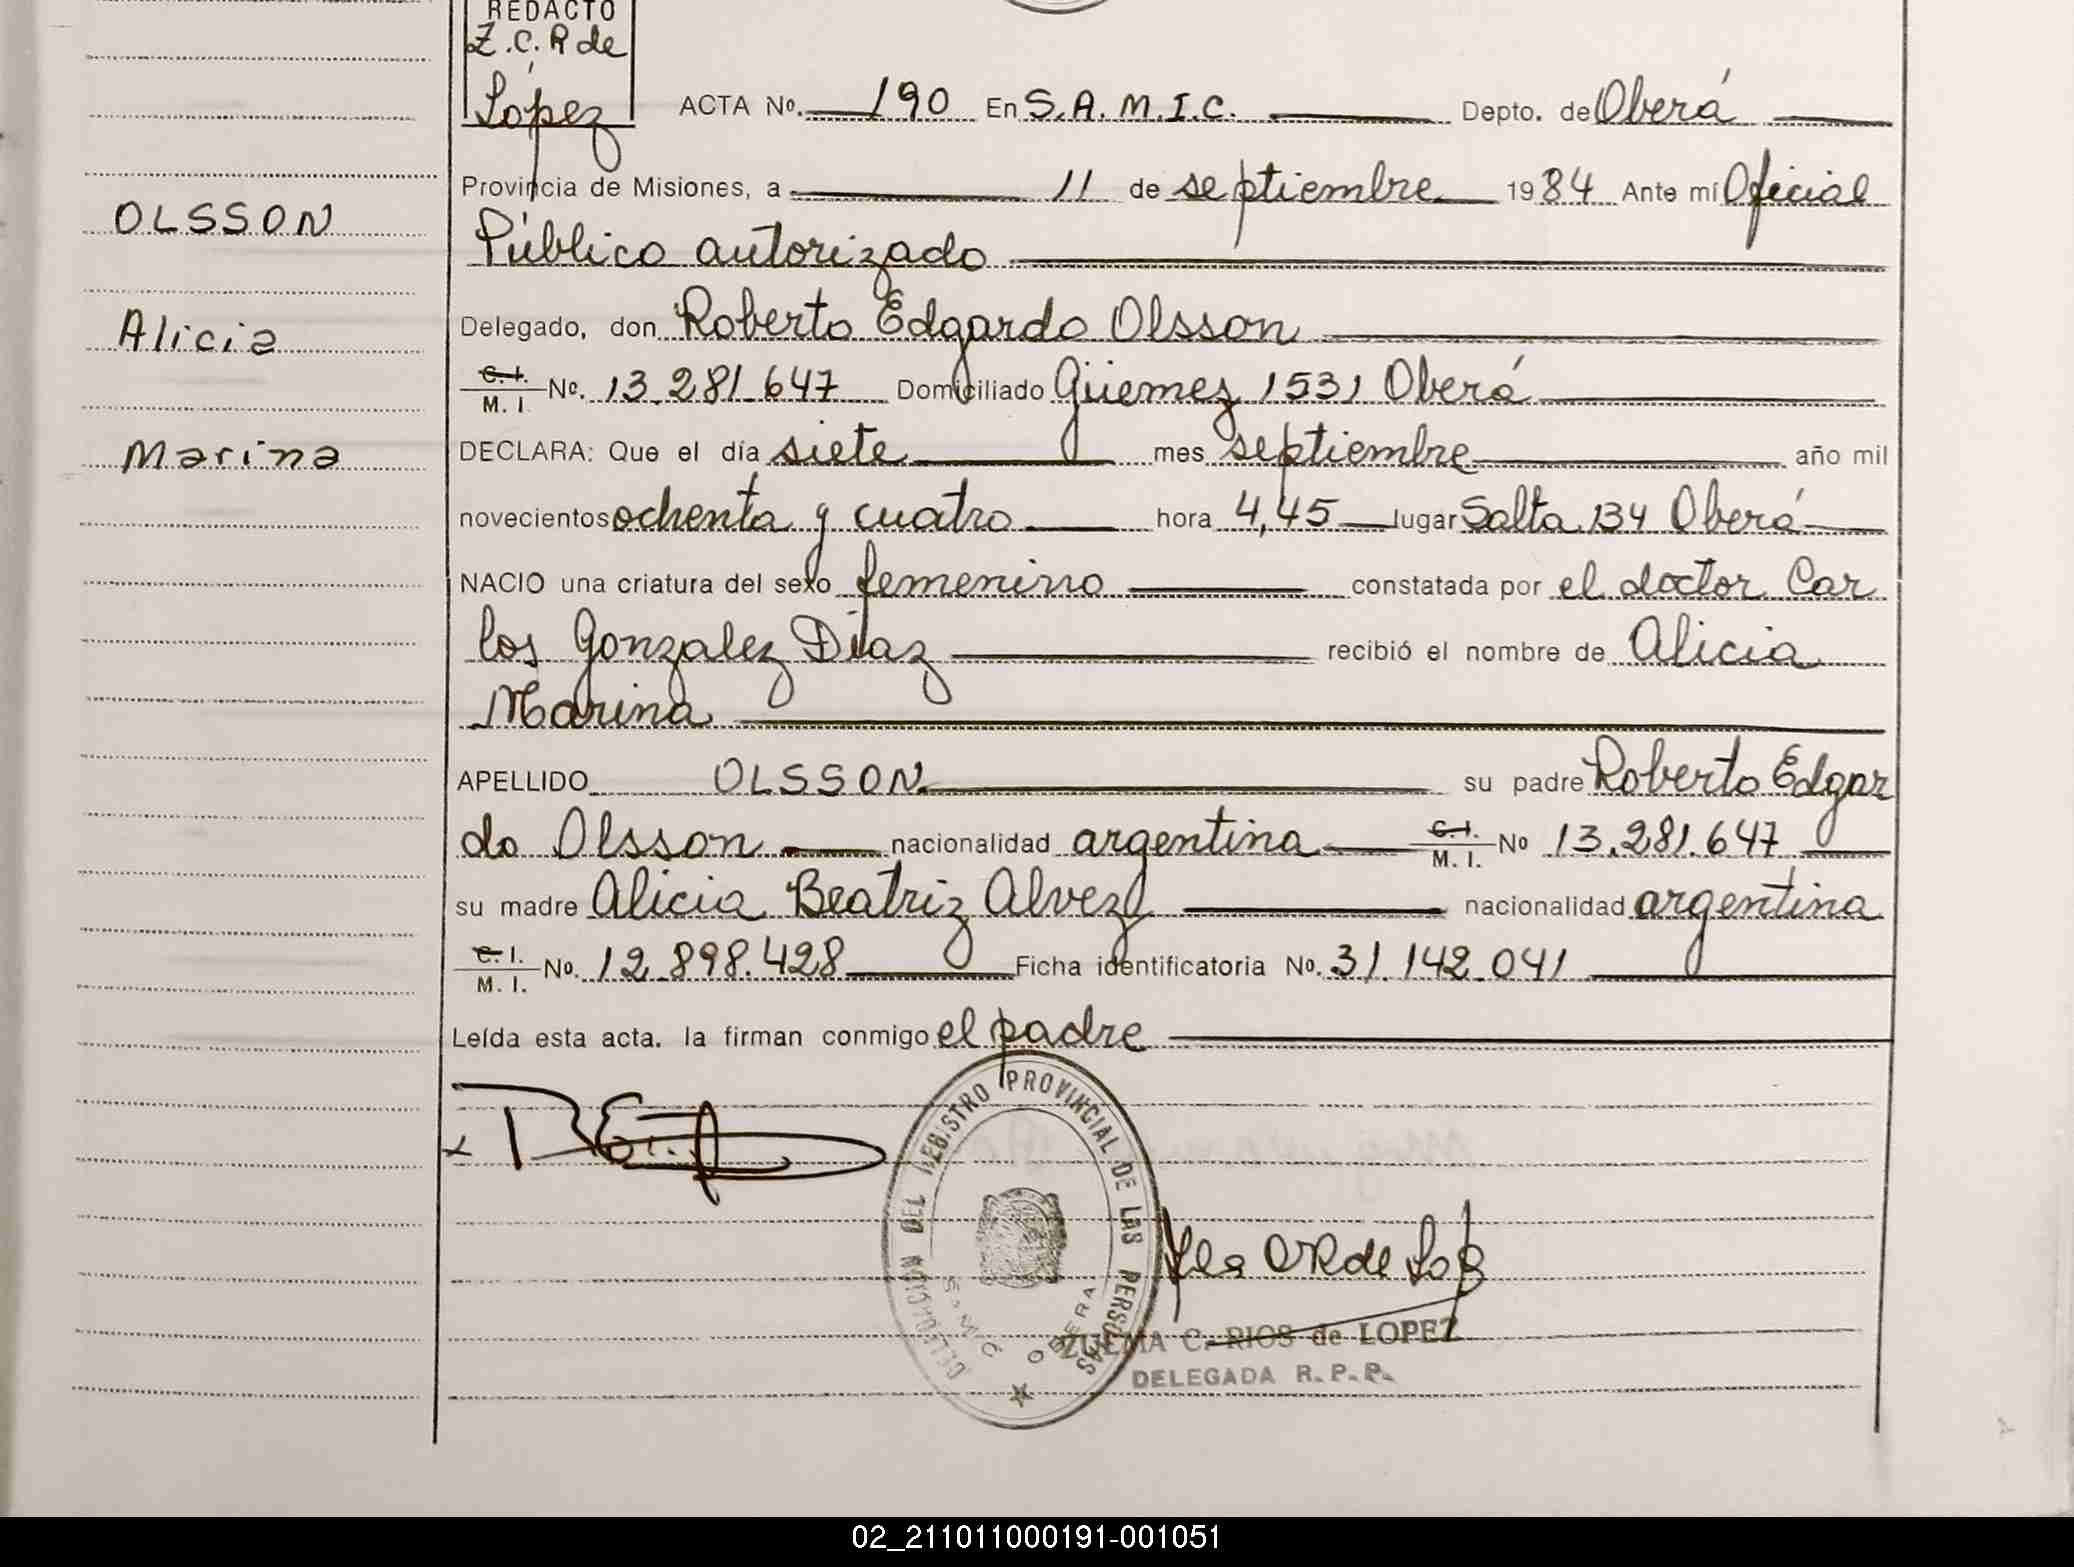 REDACTO
Z.C.R de
López
ACTA No. 190 En S.A.M.I.C. Depto. de Oberá
Provincia de Misiones, a 11 de septiembre 1984 Ante mí Oficial
Público autorizado
OLSSON
Alicia
Marina
Delegado, don Roberto Edgardo Olsson
C.I. M.I. No. 13.281.647 Domiciliado Güemes 1531 Oberá
DECLARA: Que el día siete mes septiembre año mil
novecientos ochenta y cuatro hora 4,45 lugar Salta 134 Oberá
NACIO una criatura del sexo femenino constatada por el doctor Car
los Gonzalez Díaz recibió el nombre de Alicia
Marina
APELLIDO OLSSON su padre Roberto Edgar
do Olsson nacionalidad argentina C.I. M.I. No 13.281.647
su madre Alicia Beatriz Alvez nacionalidad argentina
C.I. M.I. No. 12.898.428 Ficha identificatoria No. 31.142.041
Leída esta acta. la firman conmigo el padre
DELEGACION DEL REGISTRO PROVINCIAL DE LAS PERSONAS
S.A.M.I.C. OBERA
ZULMA C. RIOS de LOPEZ
DELEGADA R.P.P.
02_211011000191-001051